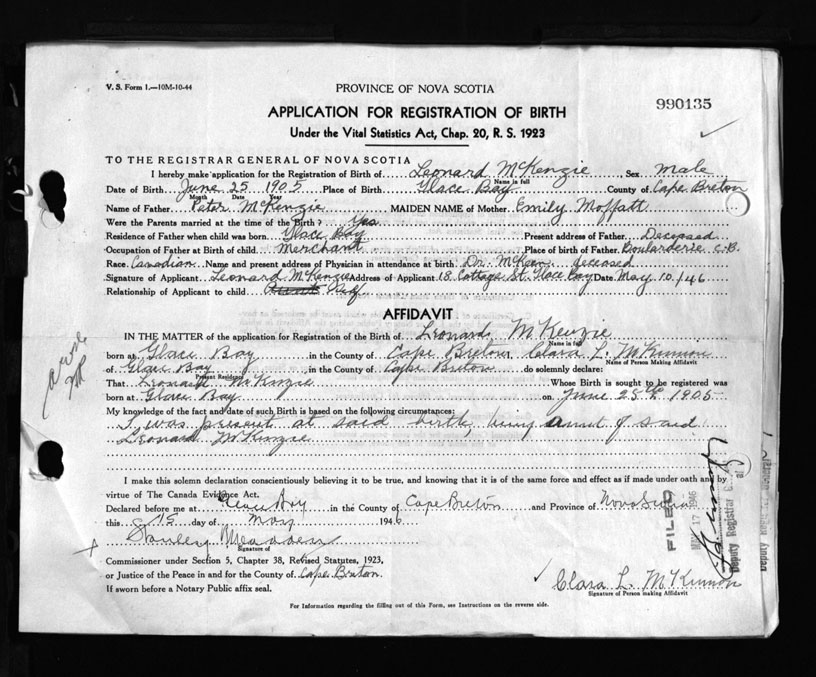 V. S. Form 1.—10M-10-44
PROVINCE OF NOVA SCOTIA
990135
APPLICATION FOR REGISTRATION OF BIRTH
Under the Vital Statistics Act, Chap. 20, R. S. 1923
TO THE REGISTRAR GENERAL OF NOVA SCOTIA
I hereby make application for the Registration of Birth of Leonard McKenzie, Sex male
Name in full
Date of Birth June 25 1905 Place of Birth Glace Bay County of Cape Breton
Month Date Year
Name of Father Peter McKenzie MAIDEN NAME of Mother Emily Moffatt
Were the Parents married at the time of the Birth? Yes
Residence of Father when child was born Glace Bay Present address of Father Deceased
Occupation of Father at Birth of child Merchant Place of birth of Father Boularderie C.B.
Race Canadian Name and present address of Physician in attendance at birth Dr. McKean deceased
Signature of Applicant Leonard McKenzie Address of Applicant 18 Cottage St. Glace Bay Date May 10/46
Relationship of Applicant to child Aunt Self
AFFIDAVIT
IN THE MATTER of the application for Registration of the Birth of Leonard McKenzie
Name in full
born at Glace Bay in the County of Cape Breton I, Clara L. McKinnon
Name of Person Making Affidavit
of Glace Bay in the County of Cape Breton do solemnly declare:
Present Residence
That Leonard McKenzie Whose Birth is sought to be registered was
born at Glace Bay on June 25th 1905
My knowledge of the fact and date of such Birth is based on the following circumstances:
I was present at said birth, being aunt of said
Leonard McKenzie
I make this solemn declaration conscientiously believing it to be true, and knowing that it is of the same force and effect as if made under oath and by
virtue of The Canada Evidence Act.
Declared before me at Glace Bay in the County of Cape Breton and Province of Nova Scotia
this 15 day of May 1946
Stanley
Signature of
Commissioner under Section 5, Chapter 38, Revised Statutes, 1923,
or Justice of the Peace in and for the County of Cape Breton
If sworn before a Notary Public affix seal.
Clara L. McKinnon
Signature of Person making Affidavit
For Information regarding the filling out of this Form, see Instructions on the reverse side.
FILED
MAY 17 1946
Deputy Registrar